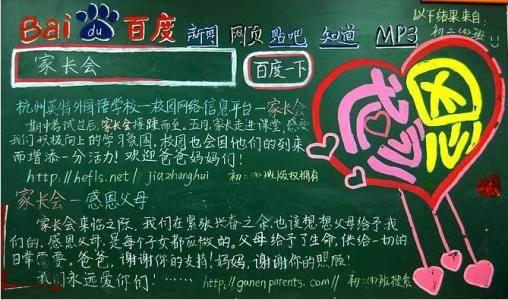 Bai du 百度 新闻 网页 贴吧 知道 MP3
以下结果来自:
初二(4)班
家长会
百度一下
感恩
杭州英特外国语学校—校园网络信息平台—家长会
期中考试过后,家长会接踵而至。五月,家长走进课堂,感受
我们积极向上的学习氛围,校园也会因他们的到来
而增添一分活力!欢迎爸爸妈妈们!
http://hefls.net/jiazhanghui 初二(4)班版权拥有
家长会—感恩父母
家长会来临之际,我们在紧张兴奋之余,也该想想父母给予我
们的。感恩父母,是每个子女都应做的。父母给予了生命,供给一切的
日常需要。爸爸,谢谢你的支持!妈妈,谢谢你的照顾!
我们永远爱你们!······http://ganenparents.com//初二(4)班搜索